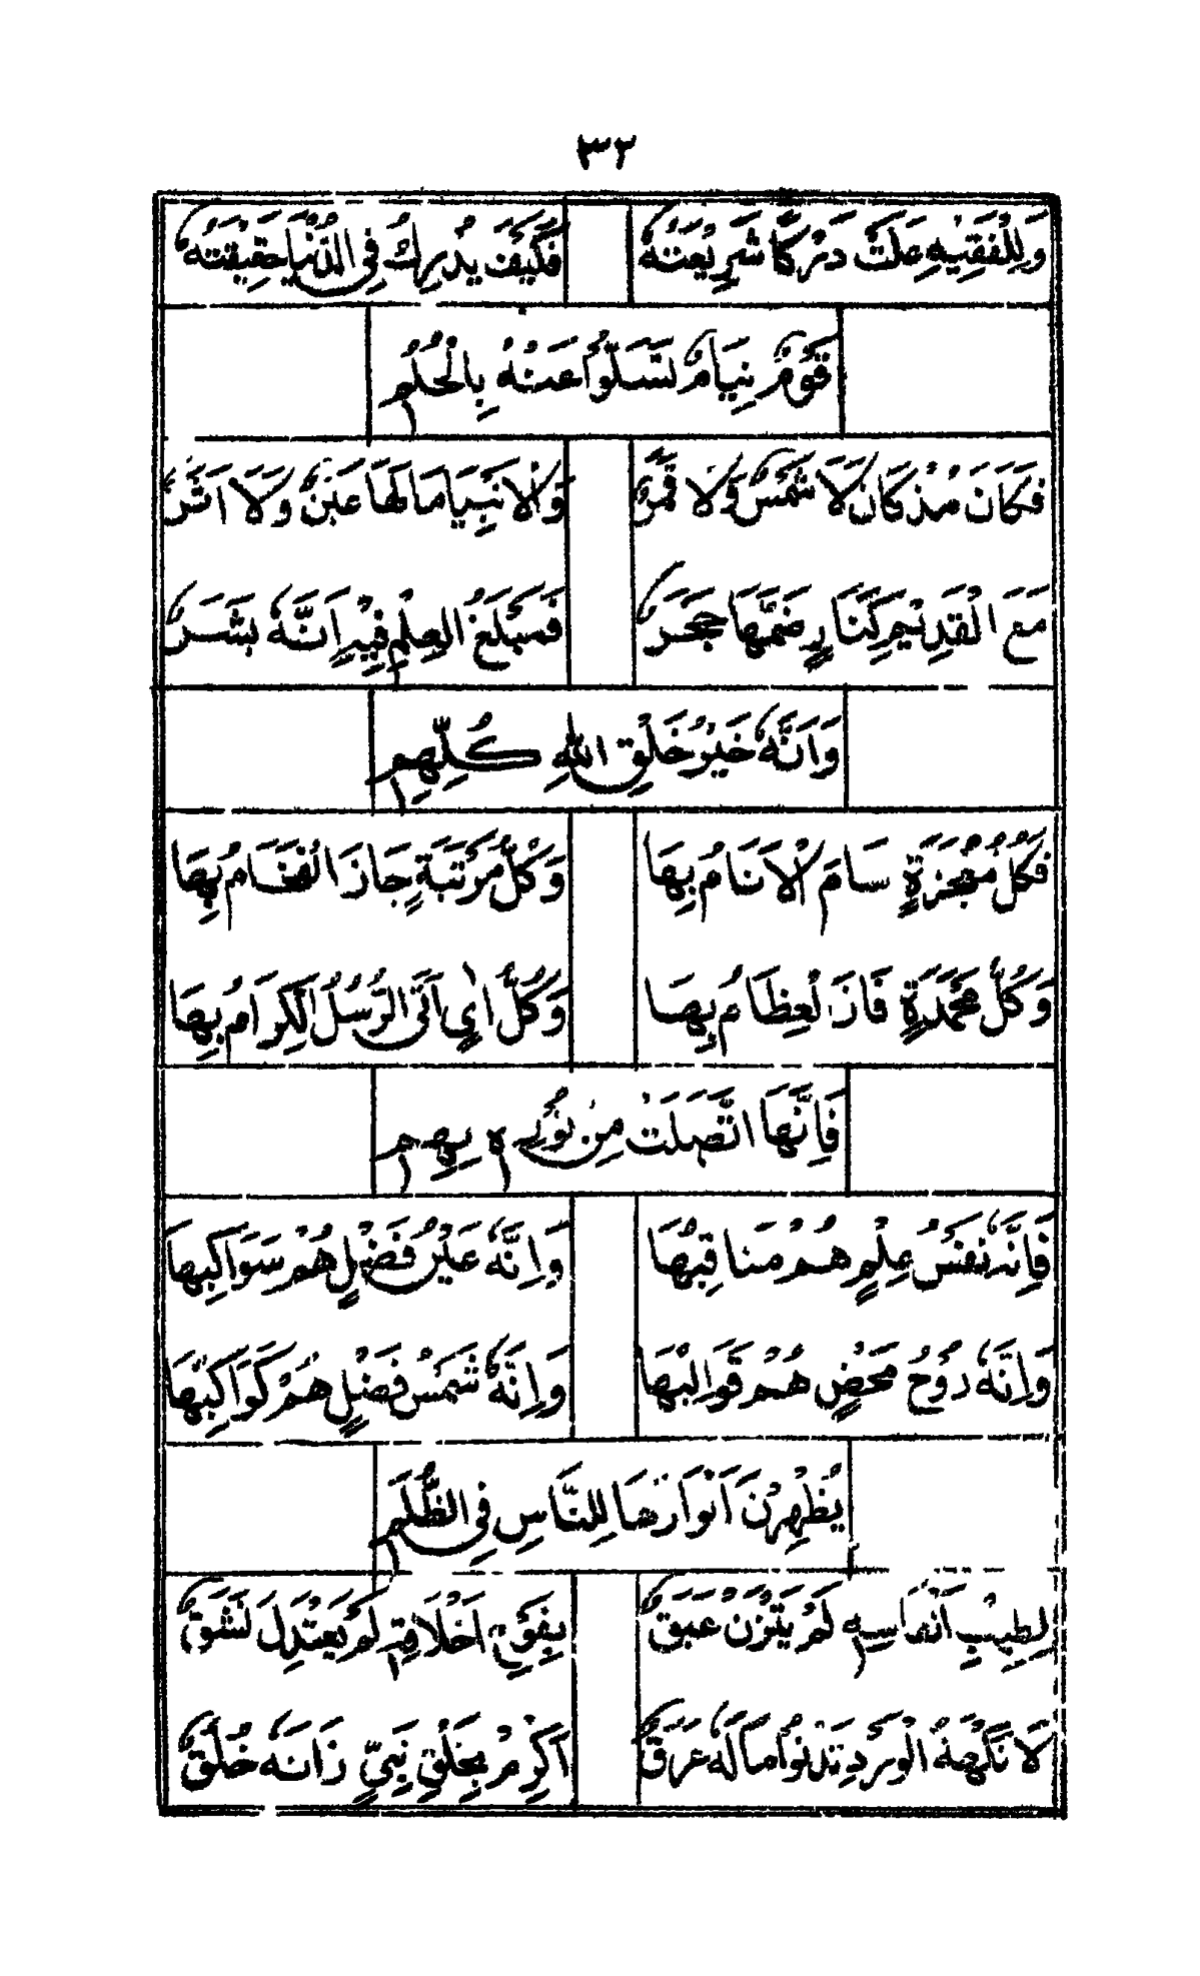 ٣٢
وَلِلْفَقِيْهِ عَلَتْ دَرْكًا شَرِيْعَتُهٗ فَكَيْفَ يُدْرِكُ فِي الدُّنْيَا حَقِيْقَتَهٗ
قَوْمٌ نِيَامٌ تَسَلَّوْا عَنْهُ بِالْحُلُمِ
فَكَانَ مُذْ كَانَ لَا شَمْسٌ وَّلَا قَمَرٌ وَالْاَنْبِيَا مَا لَهَا عَيْنٌ وَلَا اَثَرٌ
مَعَ الْقَدِيْمِ كَنَارٍ ضَمَّهَا حَجَرٌ فَمَبْلَغُ الْعِلْمِ فِيْهِ اَنَّهٗ بَشَرٌ
وَاَنَّهٗ خَيْرُ خَلْقِ اللهِ كُلِّهِمِ
فَكُلُّ مُعْجِزَةٍ سَامَ الْاَنَامُ بِهَا وَكُلُّ مَرْتَبَةٍ جَازَ الْفِخَامُ بِهَا
وَكُلُّ مَحْمَدَةٍ فَازَ الْعِظَامُ بِهَا وَكُلُّ اٰيٍ اَتَى الرُّسُلُ الْكِرَامُ بِهَا
فَاِنَّهَا اتَّصَلَتْ مِنْ نُوْرِهٖ بِهِمِ
فَاِنَّهٗ نَفْسُ عِلْمٍ هُمْ مَنَاقِبُهَا وَاِنَّهٗ عَيْنُ فَضْلٍ هُمْ سَوَاكِبُهَا
وَاِنَّهٗ رُوْحُ مَحْضٍ هُمْ قَوَالِبُهَا وَاِنَّهٗ شَمْسُ فَضْلٍ هُمْ كَوَاكِبُهَا
يُظْهِرْنَ اَنْوَارَهَا لِلنَّاسِ فِي الظُّلَمِ
لِطِيْبِ اَنْفَاسِهٖ لَمْ يَتَّزِنْ عَبَقٌ بِفَوْقِ اَخْلَاقِهٖ لَمْ يَعْتَدِلْ نَسَقٌ
لَا نَكْهَةُ الْوَرْدِ تَدْنُوْا مَا لَهٗ عَرَقٌ اَكْرِمْ بِخَلْقِ نَبِيٍّ زَانَهٗ خُلُقٌ